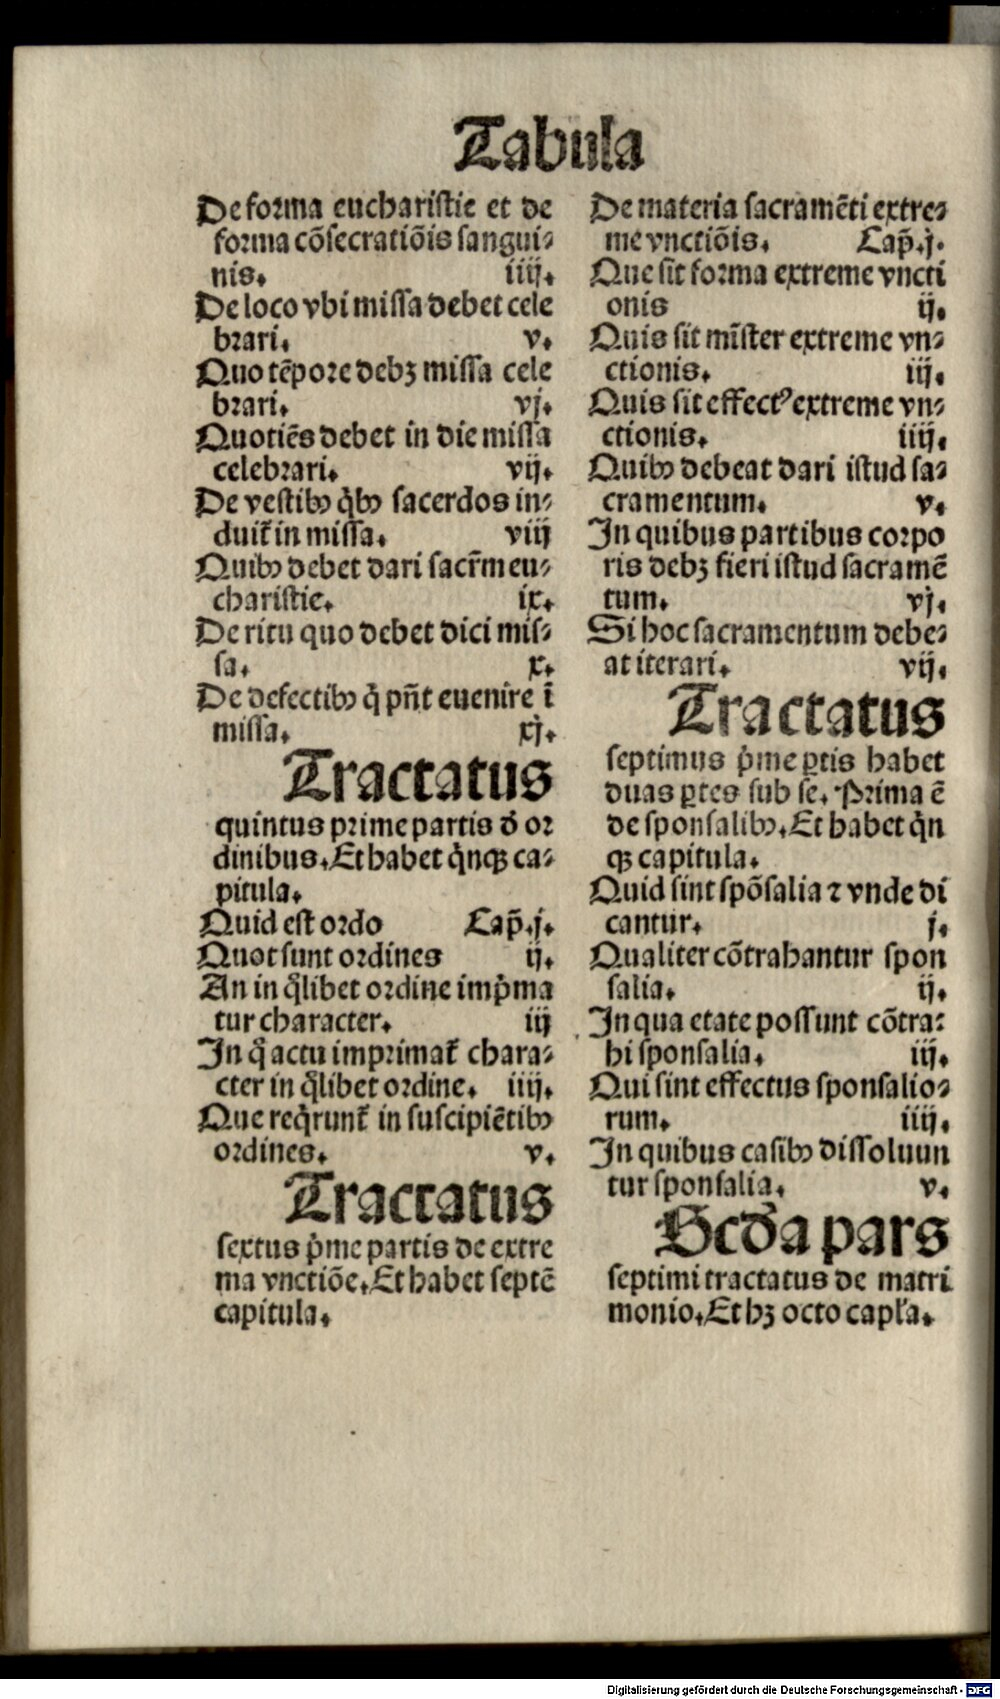 Tabula
De forma eucharistie et de
forma cõsecratiõis sangui⸗
nis. iiij.
De loco vbi missa debet cele
brari. v.
Quo tẽpore debꝫ missa cele
brari. vj.
Quotiẽs debet in die missa
celebrari. vij.
De vestibꝰ q̇bꝰ sacerdos in⸗
duit̃ in missa. viij
Quibꝰ debet dari sacr̃m eu⸗
charistie. ix.
De ritu quo debet dici mis⸗
sa. x.
De defectibꝰ q̇ pñt euenire ĩ
missa. xj.
Tractatus
quintus prime partis đ or
dinibus. Et habet q̇nqꝫ ca⸗
pitula.
Quid est ordo Cap̃. j.
Quot sunt ordines ij.
An in q̃libet ordine imp̃ma
tur character. iij
In q̊ actu imprimat̃ chara⸗
cter in q̃libet ordine. iiij.
Que req̇runt̃ in suscipiẽtibꝰ
ordines. v.
Tractatus
sextus p̃me partis de extre
ma vnctiõe. Et habet septẽ
capitula.
De materia sacramẽti extre⸗
me vnctiõis. Cap̃. j.
Que sit forma extreme vncti
onis ij.
Quis sit mĩster extreme vn⸗
ctionis. iij.
Quis sit effectꝰ extreme vn⸗
ctionis. iiij.
Quibꝰ debeat dari istud sa⸗
cramentum. v.
In quibus partibus corpo
ris debꝫ fieri istud sacramẽ
tum. vj.
Si hoc sacramentum debe⸗
at iterari. vij.
Tractatus
septimus p̃me ꝑtis habet
duas ꝑtes sub se. Prima ẽ
de sponsalibꝰ. Et habet q̇n
qꝫ capitula.
Quid sint spõsalia ⁊ vnde di
cantur. j.
Qualiter cõtrahantur spon
salia. ij.
In qua etate possunt cõtra⸗
hi sponsalia. iij.
Qui sint effectus sponsalio⸗
rum. iiij.
In quibus casibꝰ dissoluun
tur sponsalia. v.
Scđa pars
septimi tractatus de matri
monio. Et hꝫ octo capl'a.
Digitalisierung gefördert durch die Deutsche Forschungsgemeinschaft - DFG